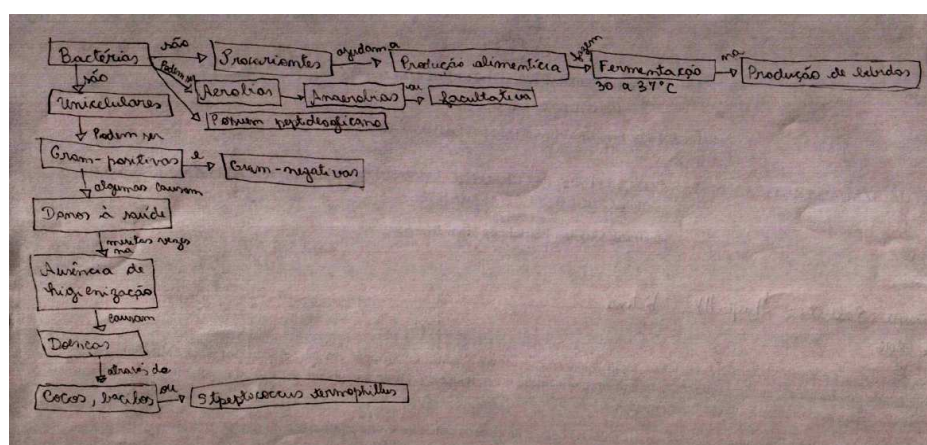 Bactérias são Procariontes ajudam a Produção alimentícia fazem Fermentação na Produção de bebidas
30 a 37°C
são Podem ser Aerobias Anaerobias ou facultativa
Unicelulares Possuem peptideoglicano
Podem ser
Gram-positivas e Gram-negativas
algumas causam
Danos à saúde
muitas vezes
na
Ausência de
higienização
causam
Doencas
através de
Cocos, bacilos ou Streptococcus termophillus